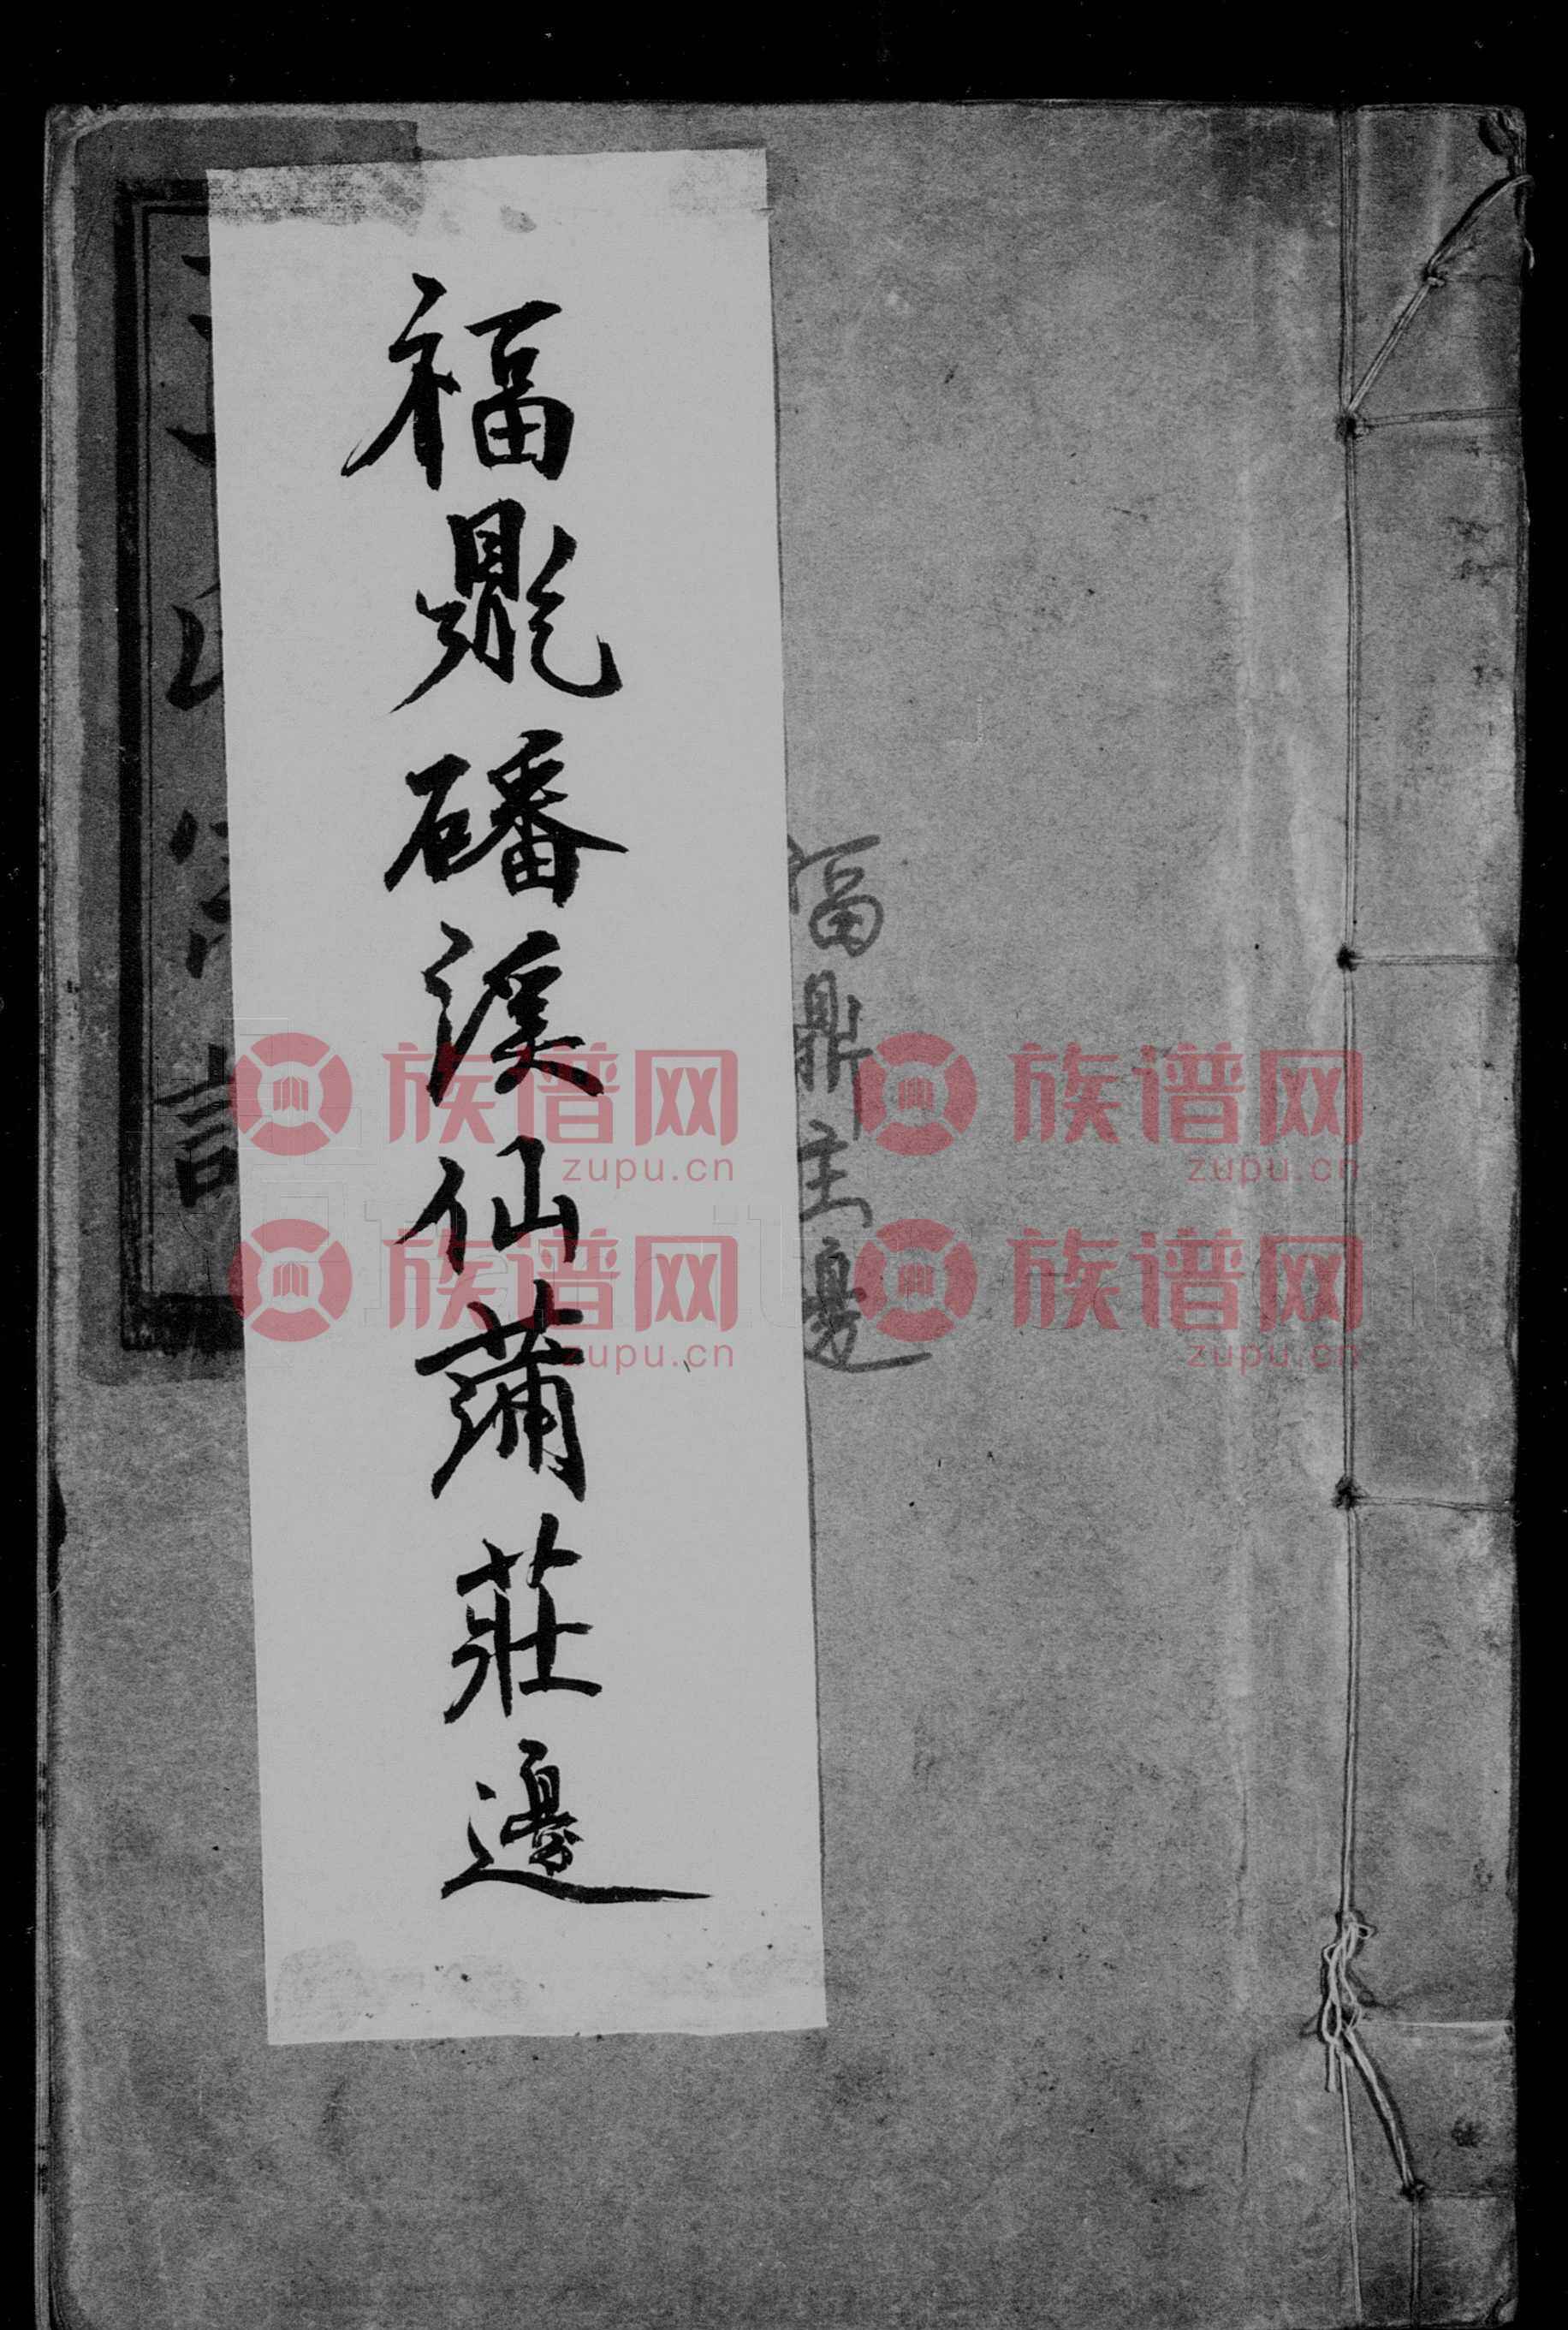 福鼎磻溪仙蒲莊邊
福鼎庄邊
族谱网 族谱网
zupu.cn zupu.cn
族谱网 族谱网
zupu.cn zupu.cn